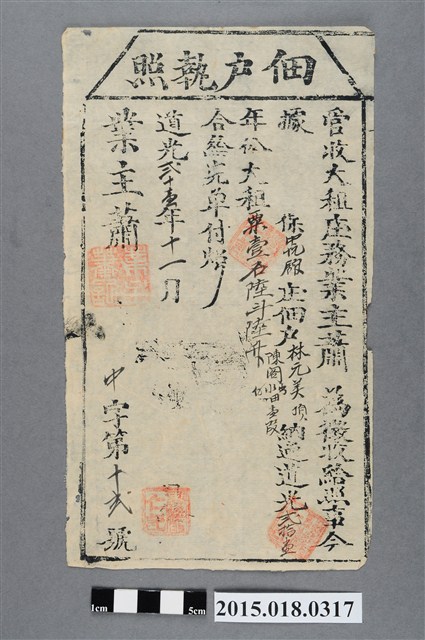 佃戶執照
管收大租庄務業主蕭 為徵收給照事今
據 保 厝庄佃戶林元美頂陳 小田壹段 納過道光貳拾壹
年份大租粟壹石陸斗陸升
合給完單付照
道光貳十壹年十一月
業主蕭
中字第十貳號
1cm
5cm
2015.018.0317